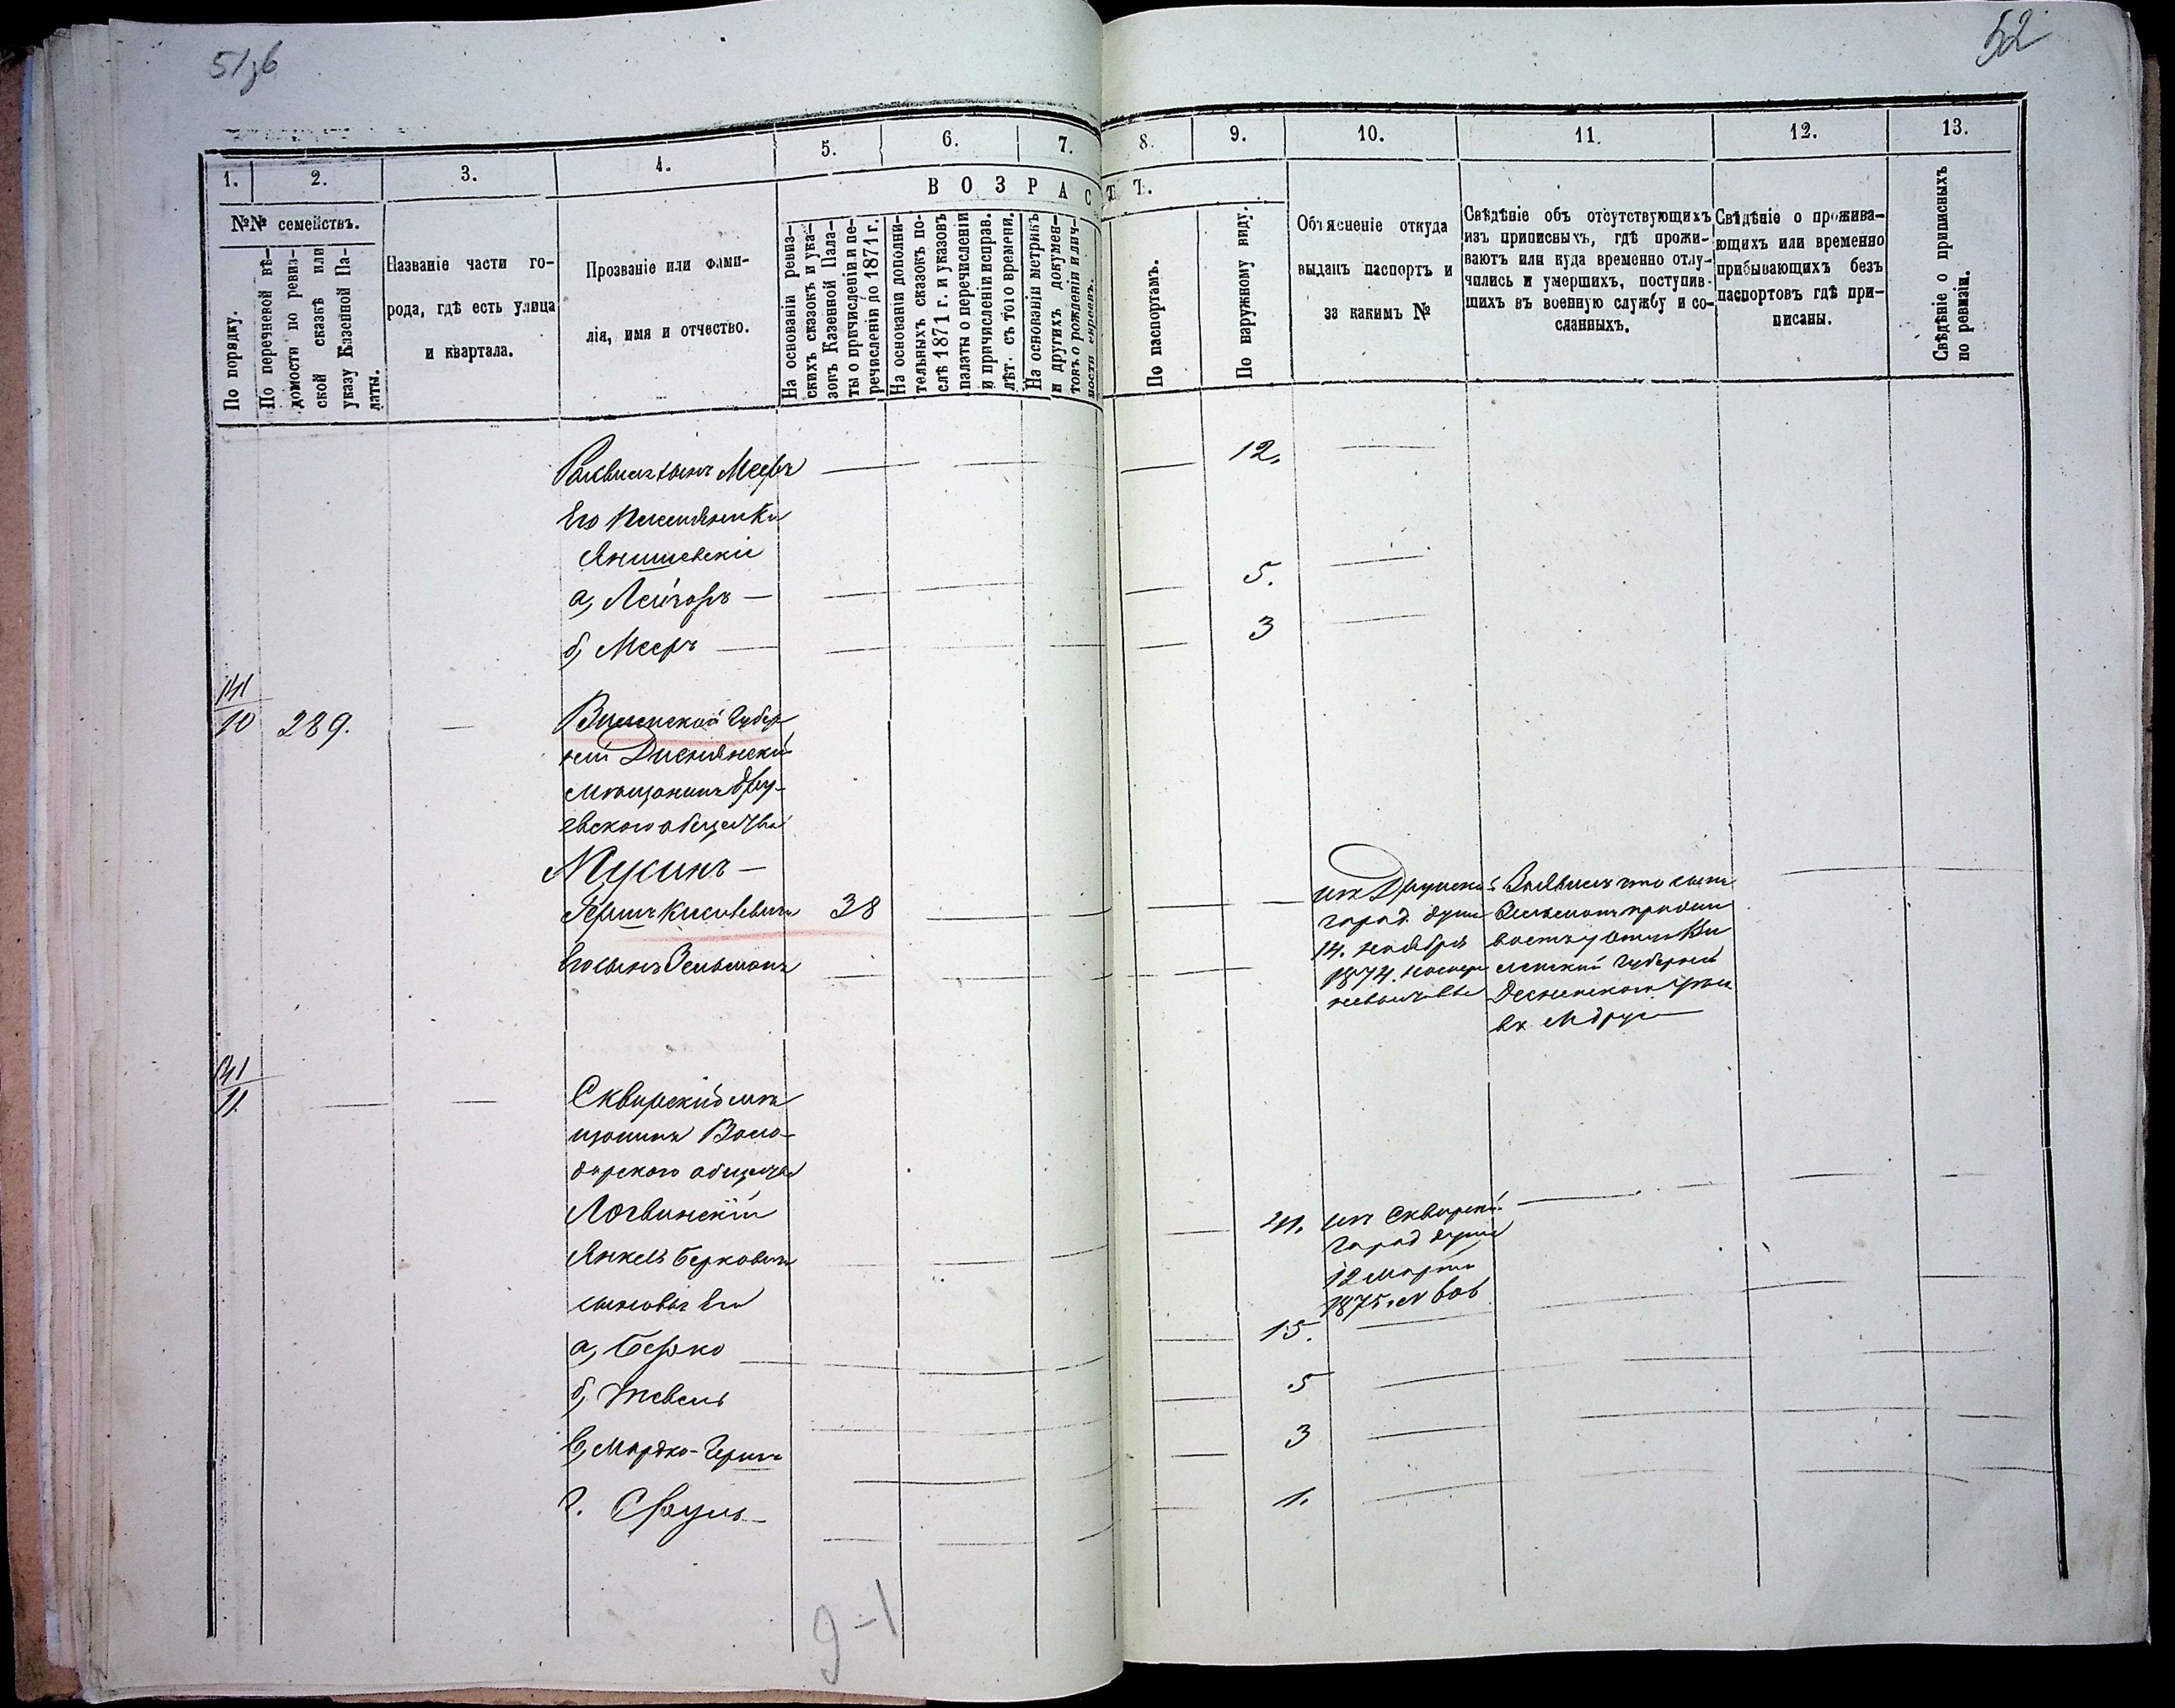 51 зв
52
1.
2.
3.
4.
5.
6.
7.
8.
9.
10.
11.
12.
13.
В О З Р А С Т Ъ.
№№ семействъ.
По порядку.
По перечневой вѣ-
домости по ревиз-
ской сказкѣ или
указу Казенной Па-
латы.
Названіе части го-
рода, гдѣ есть улица
и квартала.
Прозваніе или фами-
лія, имя и отчество.
На основаніи ревиз-
скихъ сказокъ и ука-
зовъ Казенной Пала-
ты о причисленіи и пе-
речисленіи до 1871 г.
На основаніи дополни-
тельныхъ сказокъ по-
слѣ 1871 г. и указовъ
палаты о перечисленіи
и причисленіи исправ.
лѣт. съ того времени.
На основаніи метрикъ
и другихъ докумен-
товъ о рожденіи и лич-
ности евреевъ.
По паспортамъ.
По наружному виду.
Объясненіе откуда
выданъ паспортъ и
за какимъ №
Свѣдѣніе объ отсутствующихъ
изъ приписныхъ, гдѣ прожи-
ваютъ или куда временно отлу-
чились и умершихъ, поступив-
шихъ въ военную службу и со-
сланныхъ.
Свѣдѣніе о прожива-
ющихъ или временно
прибывающихъ безъ
паспортовъ гдѣ при-
писаны.
Свѣдѣніе о приписныхъ
по ревизіи.
сынъ Мееръ — 12.
Его племянники
Янишевскіе
а, Лейзоръ — 5.
б, Мееръ — 3
141
10 289. — Виленской Губер
ніи Диснянскій
мѣщанинъ Дру-
евского общества
Мусинъ —
Гершъ Кисилевичъ 38
Его сынъ Зельманъ
изъ Друйской
город. думы
14. ноября
1874.
Заявилъ что сынъ
Зельманъ
Ви
ленской Губерніи
Десненского уѣзда
въ М Друе
141
11. — Сквирскій мѣ
щанинъ Воло-
дарского общества
Логвинскій
Янкель Берковичъ
41. изъ Сквирской
город думы
12 марта
1875 г №
сыновья Его
а, Берко 15.
б, Тевель 5
в, Мордко-Гершъ 3
г. Сруль — 1.
9-1